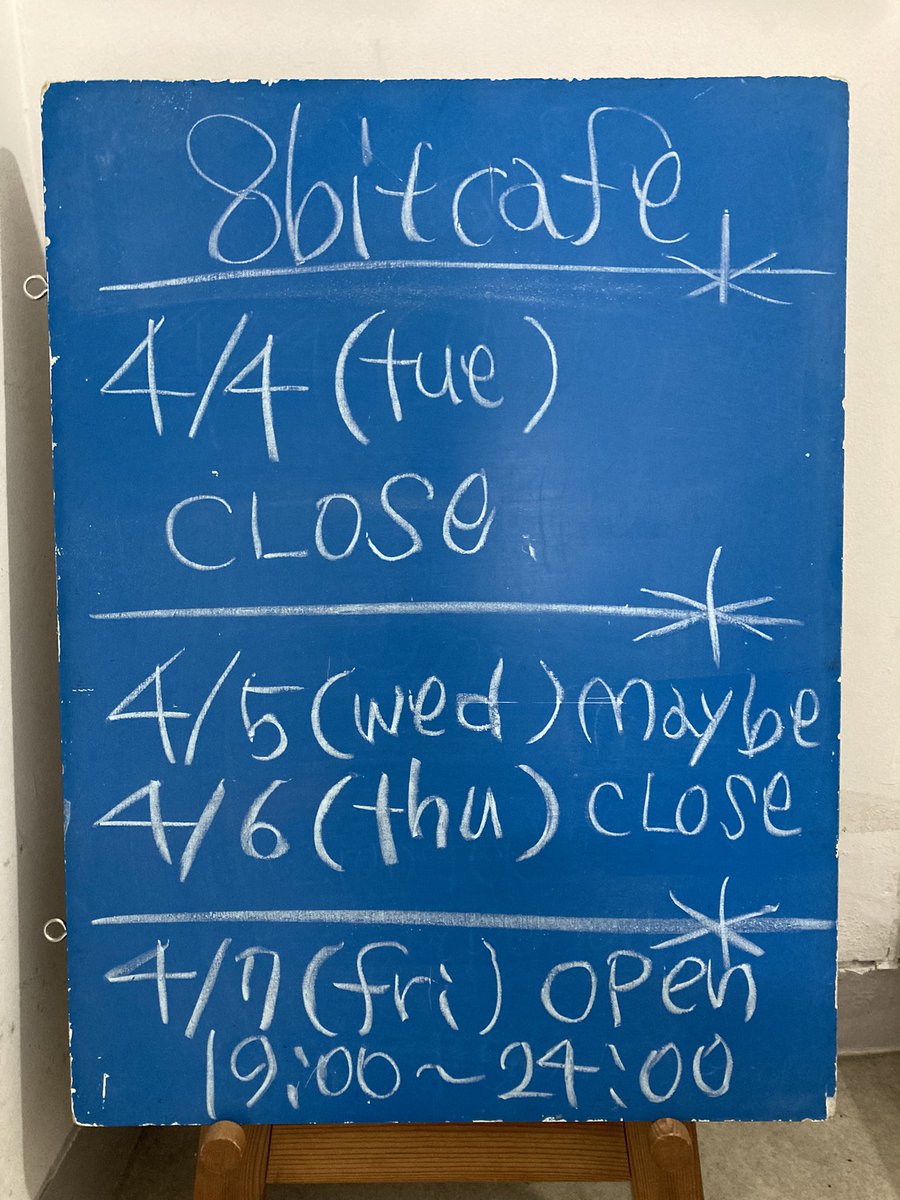 8bitcafe
4/4 (tue)
CLOSe
4/5 (wed) maybe
4/6 (thu) CLOSe
4/7 (fri) open
19:00~24:00